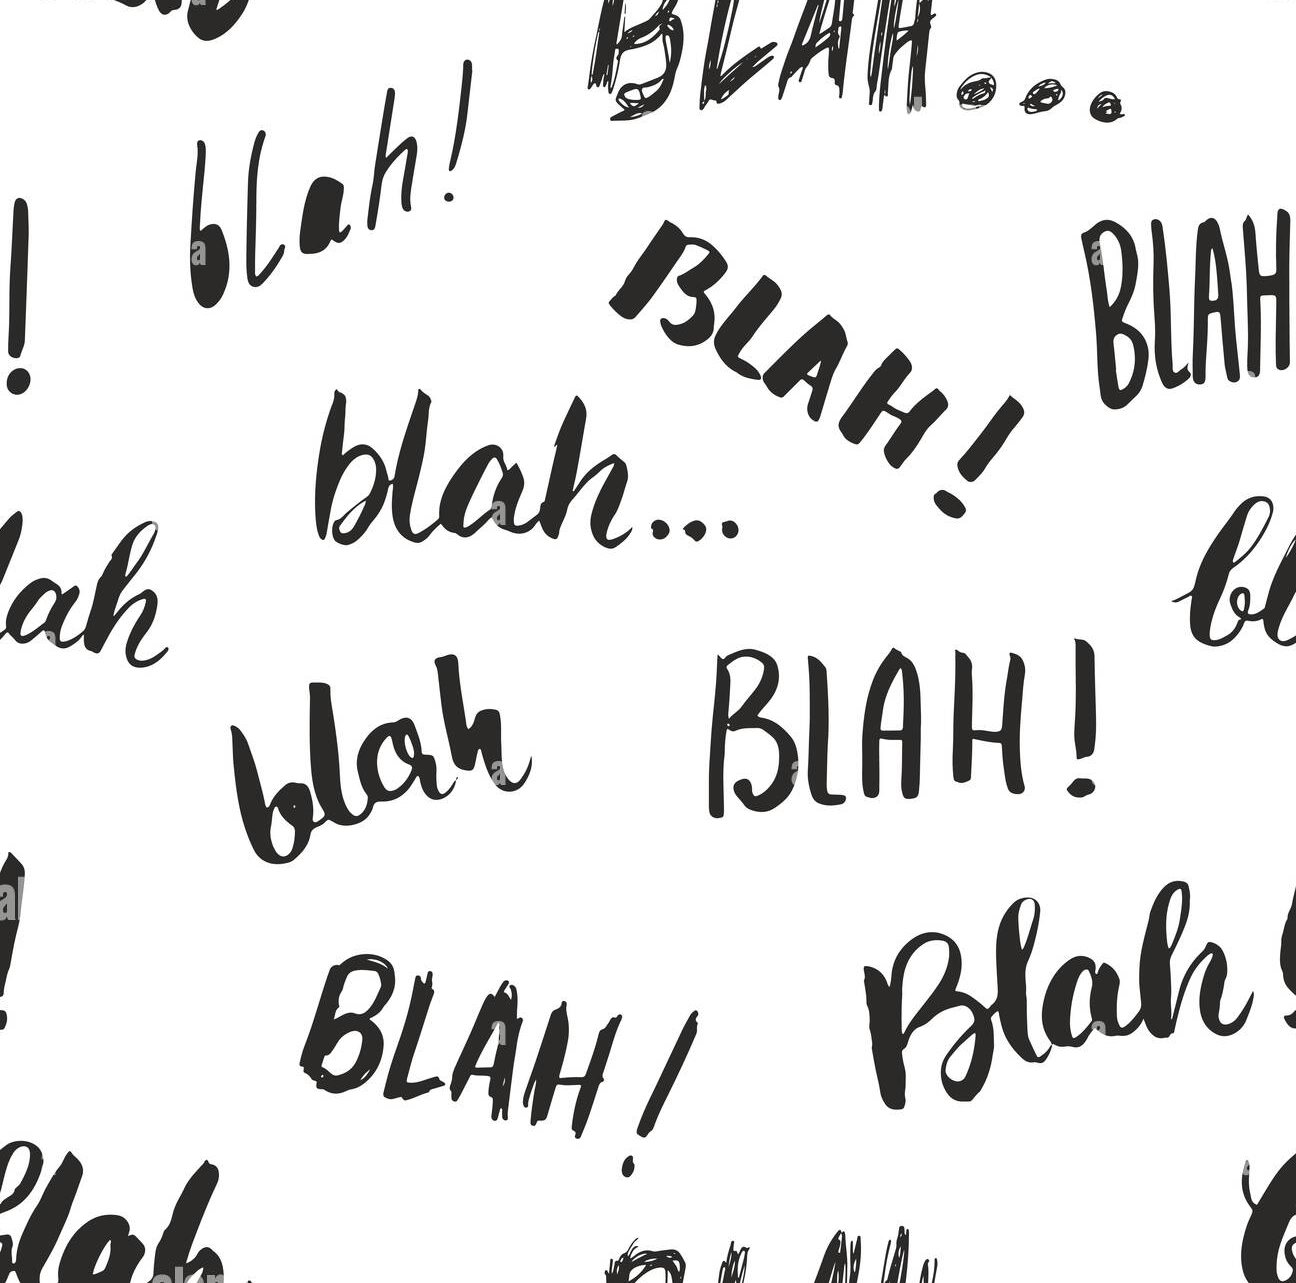 BLAH...
blah!
!
BLAH!
BLAH
blah...
lah
bl
blah
BLAH!
!
Blah
BLAH!
blah